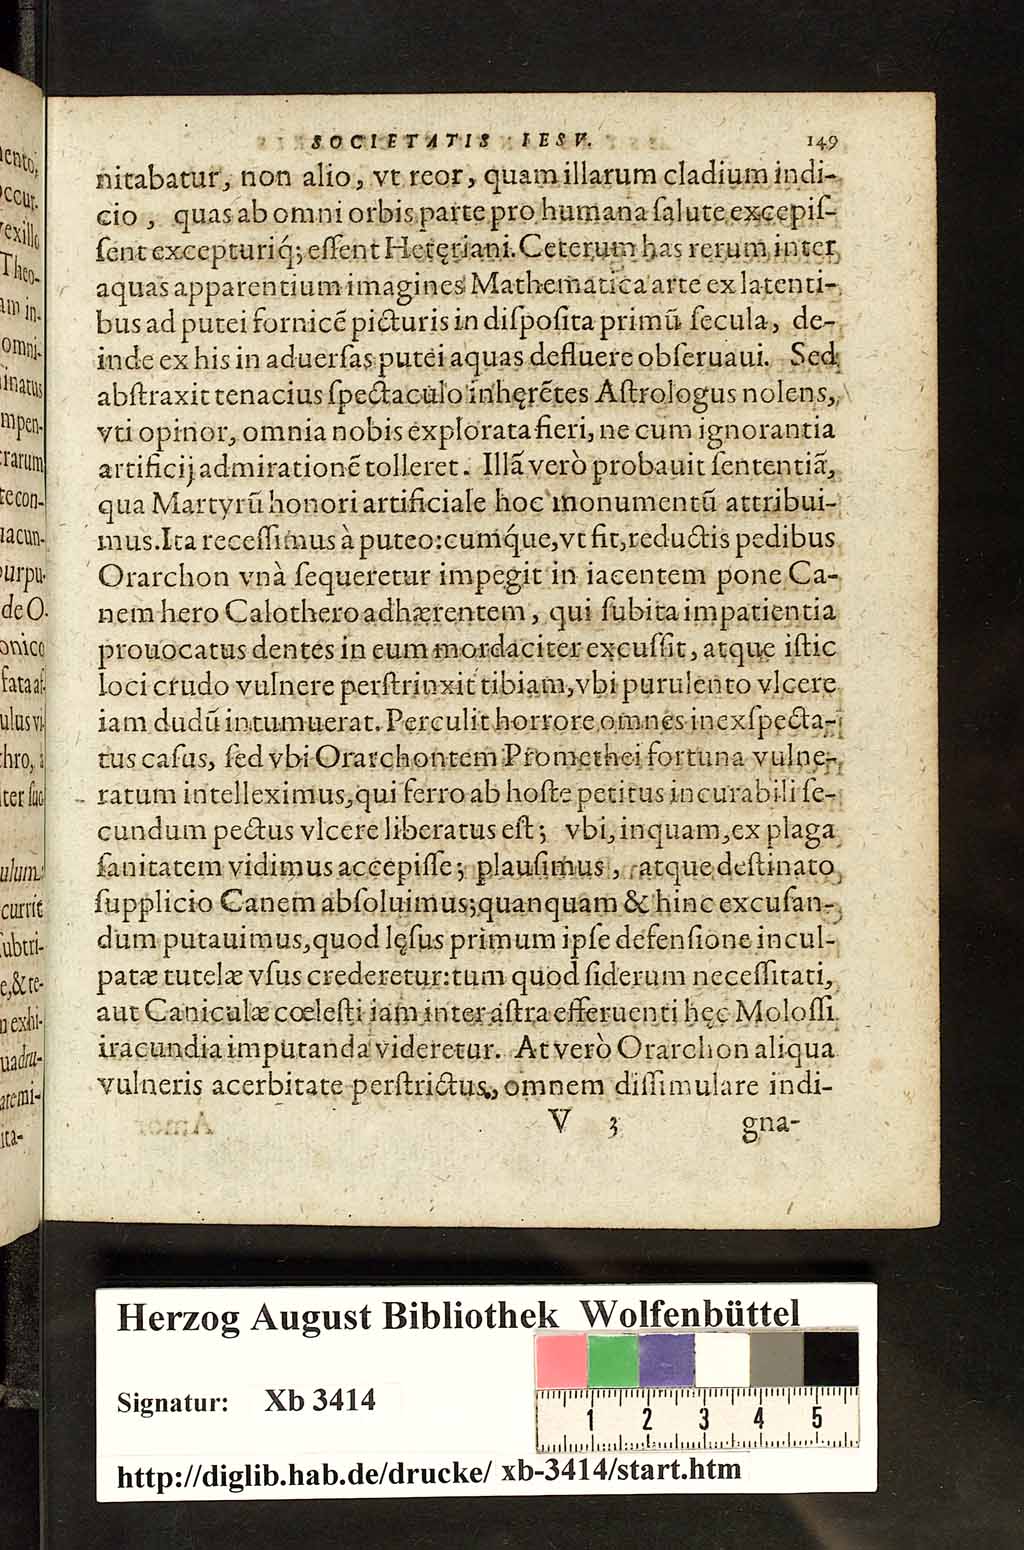 SOCIETATIS IESV. 149
nitabatur, non alio, vt reor, quam illarum cladium indi-
cio, quas ab omni orbis parte pro humana ſalute excepiſ-
ſent excepturiq́; eſſent Hetęriani. Ceterum has rerum inter
aquas apparentium imagines Mathematica arte ex latenti-
bus ad putei fornicẽ picturis in diſpoſita primũ ſecula, de-
inde ex his in aduerſas putei aquas defluere obſeruaui. Sed
abſtraxit tenacius ſpectaculo inhęrẽtes Aſtrologus nolens,
vti opinor, omnia nobis explorata fieri, ne cum ignorantia
artificij admirationẽ tolleret. Illã verò probauit ſententiã,
qua Martyrũ honori artificiale hoc monumentũ attribui-
mus. Ita receſſimus à puteo: cumq́ue, vt fit, reductis pedibus
Orarchon vnà ſequeretur impegit in iacentem pone Ca-
nem hero Calothero adhærentem, qui ſubita impatientia
prouocatus dentes in eum mordaciter excuſſit, atque iſtic
loci crudo vulnere perſtrinxit tibiam, vbi purulento vlcere
iam dudũ intumuerat. Perculit horrore omnes inexſpecta-
tus caſus, ſed vbi Orarchontem Promethei fortuna vulne-
ratum intelleximus, qui ferro ab hoſte petitus incurabili ſe-
cundum pectus vlcere liberatus eſt; vbi, inquam, ex plaga
ſanitatem vidimus accepiſſe; plauſimus, atque deſtinato
ſupplicio Canem abſoluimus; quanquam & hinc excuſan-
dum putauimus, quod lęſus primum ipſe defenſione incul-
patæ tutelæ vſus crederetur: tum quod ſiderum neceſſitati,
aut Caniculæ cœleſti iam inter aſtra efferuenti hęc Moloſſi
iracundia imputanda videretur. At verò Orarchon aliqua
vulneris acerbitate perſtrictus, omnem diſſimulare indi-
V 3 gna-
Herzog August Bibliothek Wolfenbüttel
Signatur: Xb 3414
1 2 3 4 5
http://diglib.hab.de/drucke/ xb-3414/start.htm